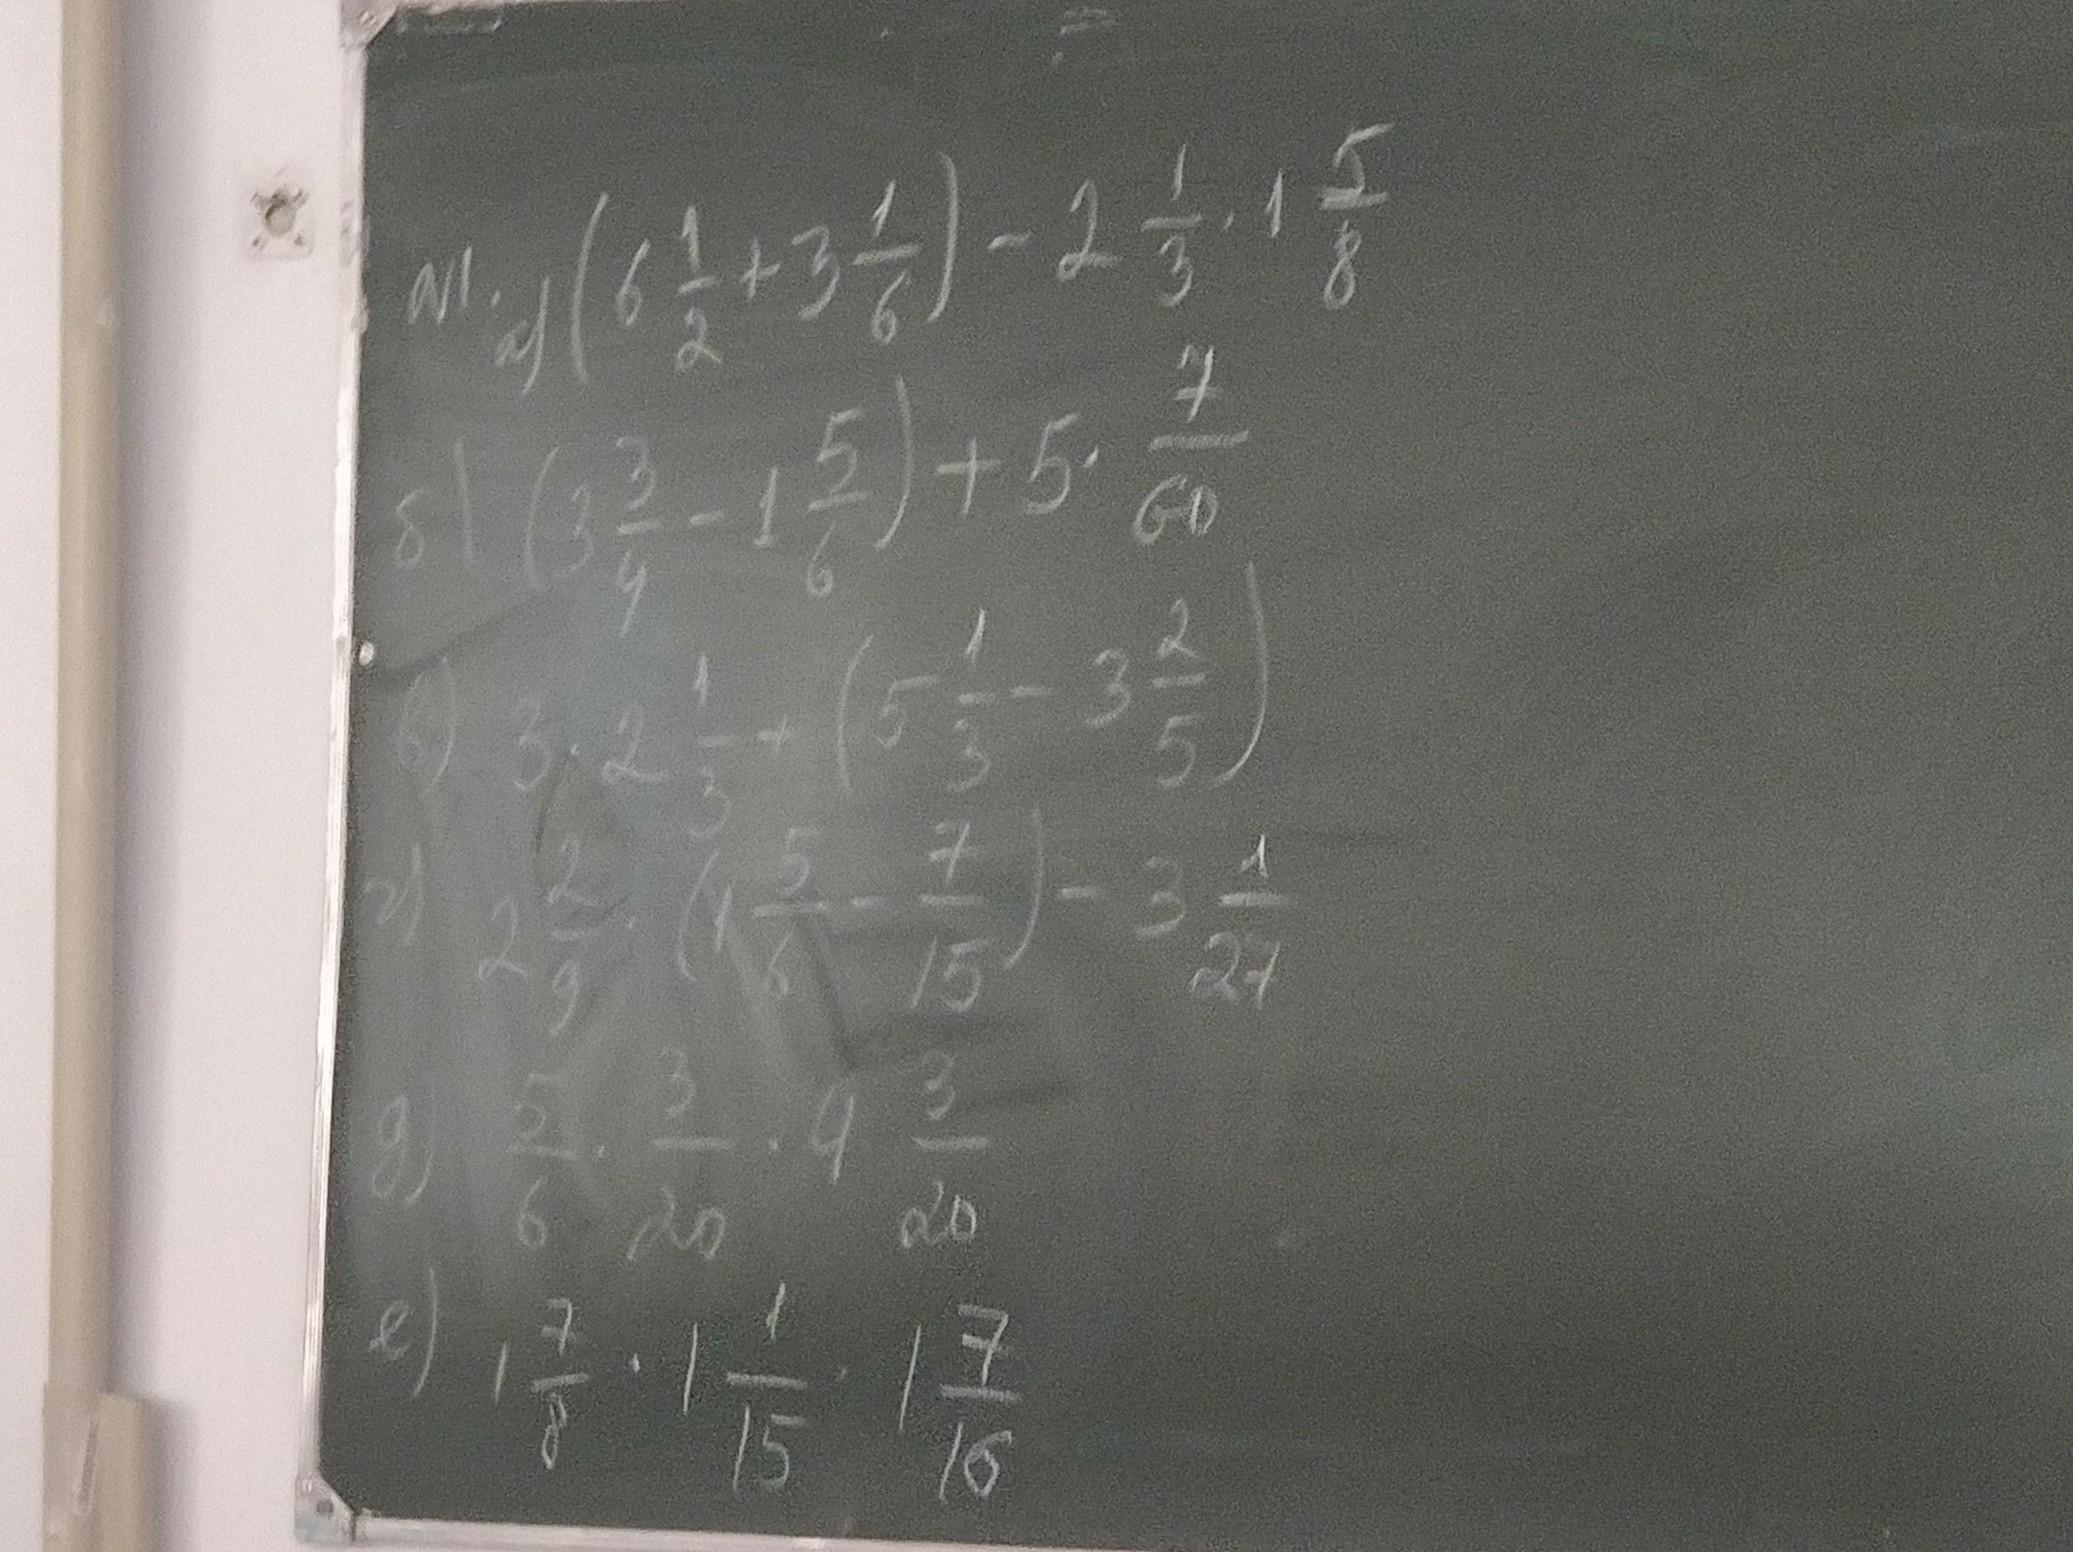 №1. а) (6 1/2 + 3 1/6) - 2 1/3 · 1 5/8
б) (3 3/4 - 1 5/6) + 5 · 7/60
в) 3 · 2 1/3 + (5 1/3 - 3 2/5)
г) 2 2/9 · (1 5/6 - 7/15) - 3 1/27
д) 5/6 · 3/20 · 4 3/20
е) 1 7/8 · 1 1/15 · 1 7/16